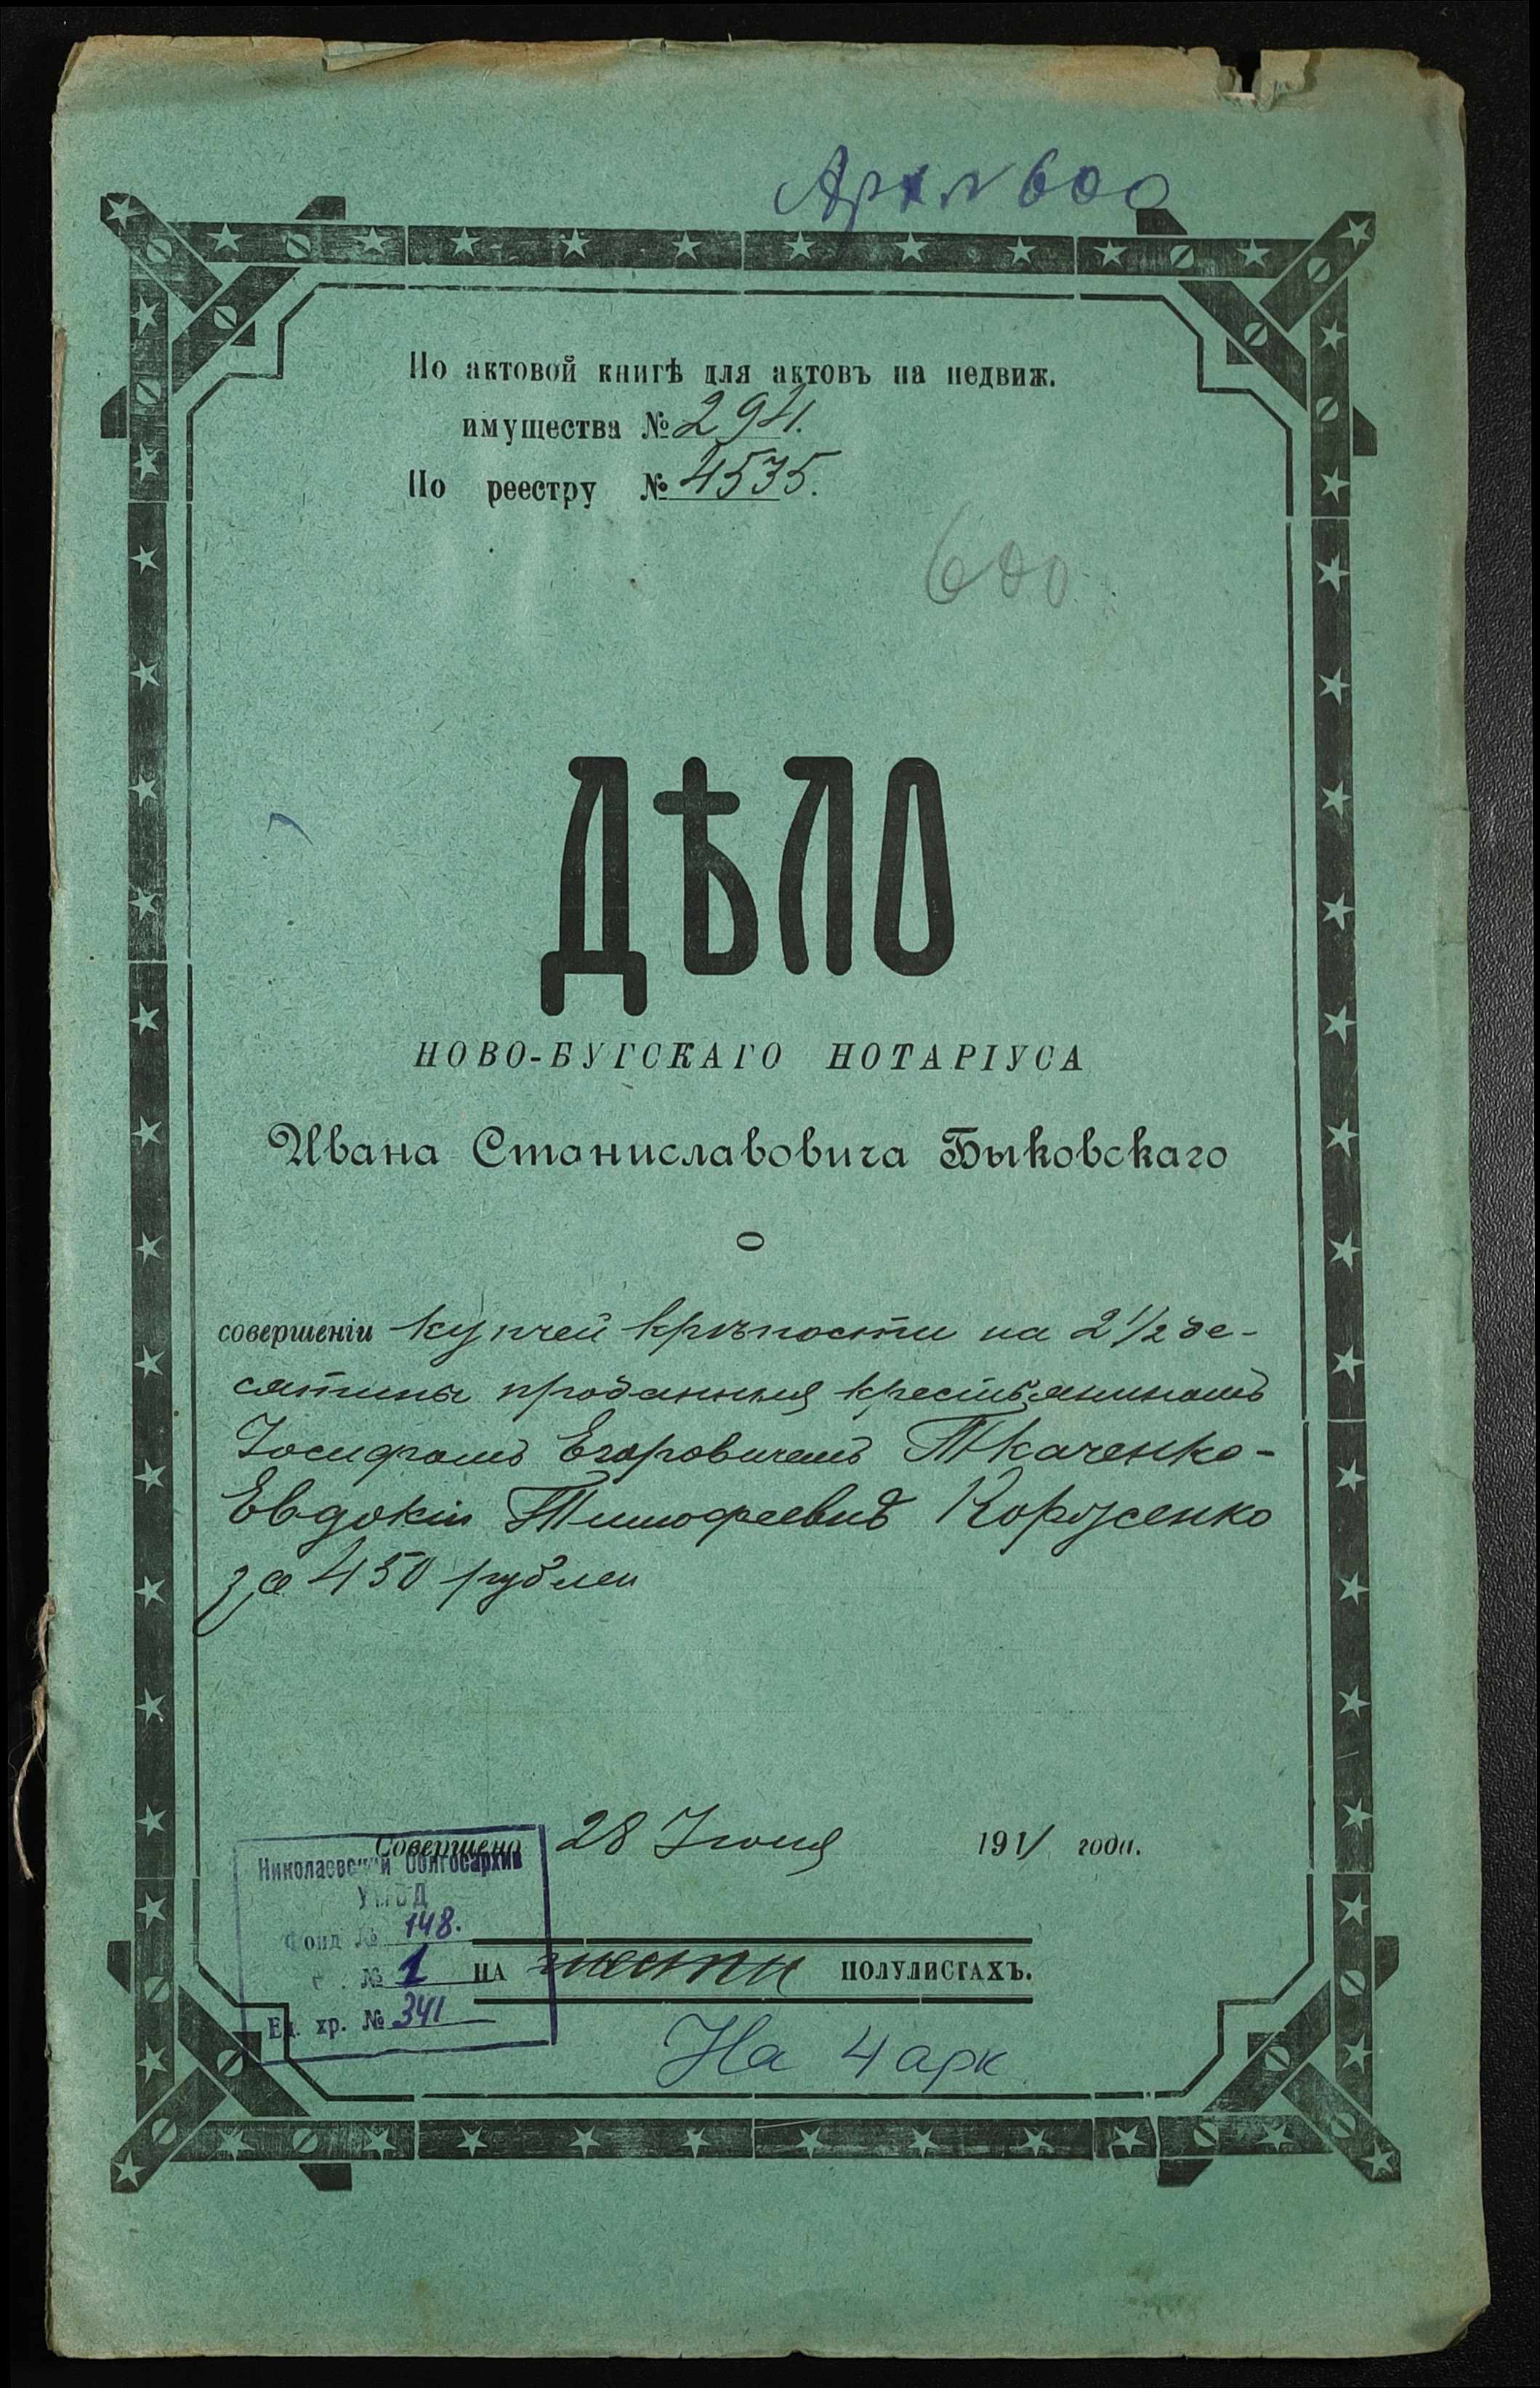 Арх № 600
По актовой книгѣ для актовъ на недвиж.
имущества № 294.
По реестру № 4535.
600
ДѢЛО
НОВО-БУГСКАГО НОТАРІУСА
Ивана Станиславовича Быковскаго
О
совершеніи купчей крѣпости на 2 1/2 де-
сятины проданныя крестьяниномъ
Іосифомъ Егоровичемъ Ткаченко-
Евдокіи Тимофеевнѣ Корусенко
за 450 рублей
Совершено 28 Іюня 1911 года.
Николаевский Облгосархив
УМВД
Фонд № 148.
№ 1
Ед. хр. № 341
НА шести ПОЛУЛИСТАХЪ.
На 4 арк